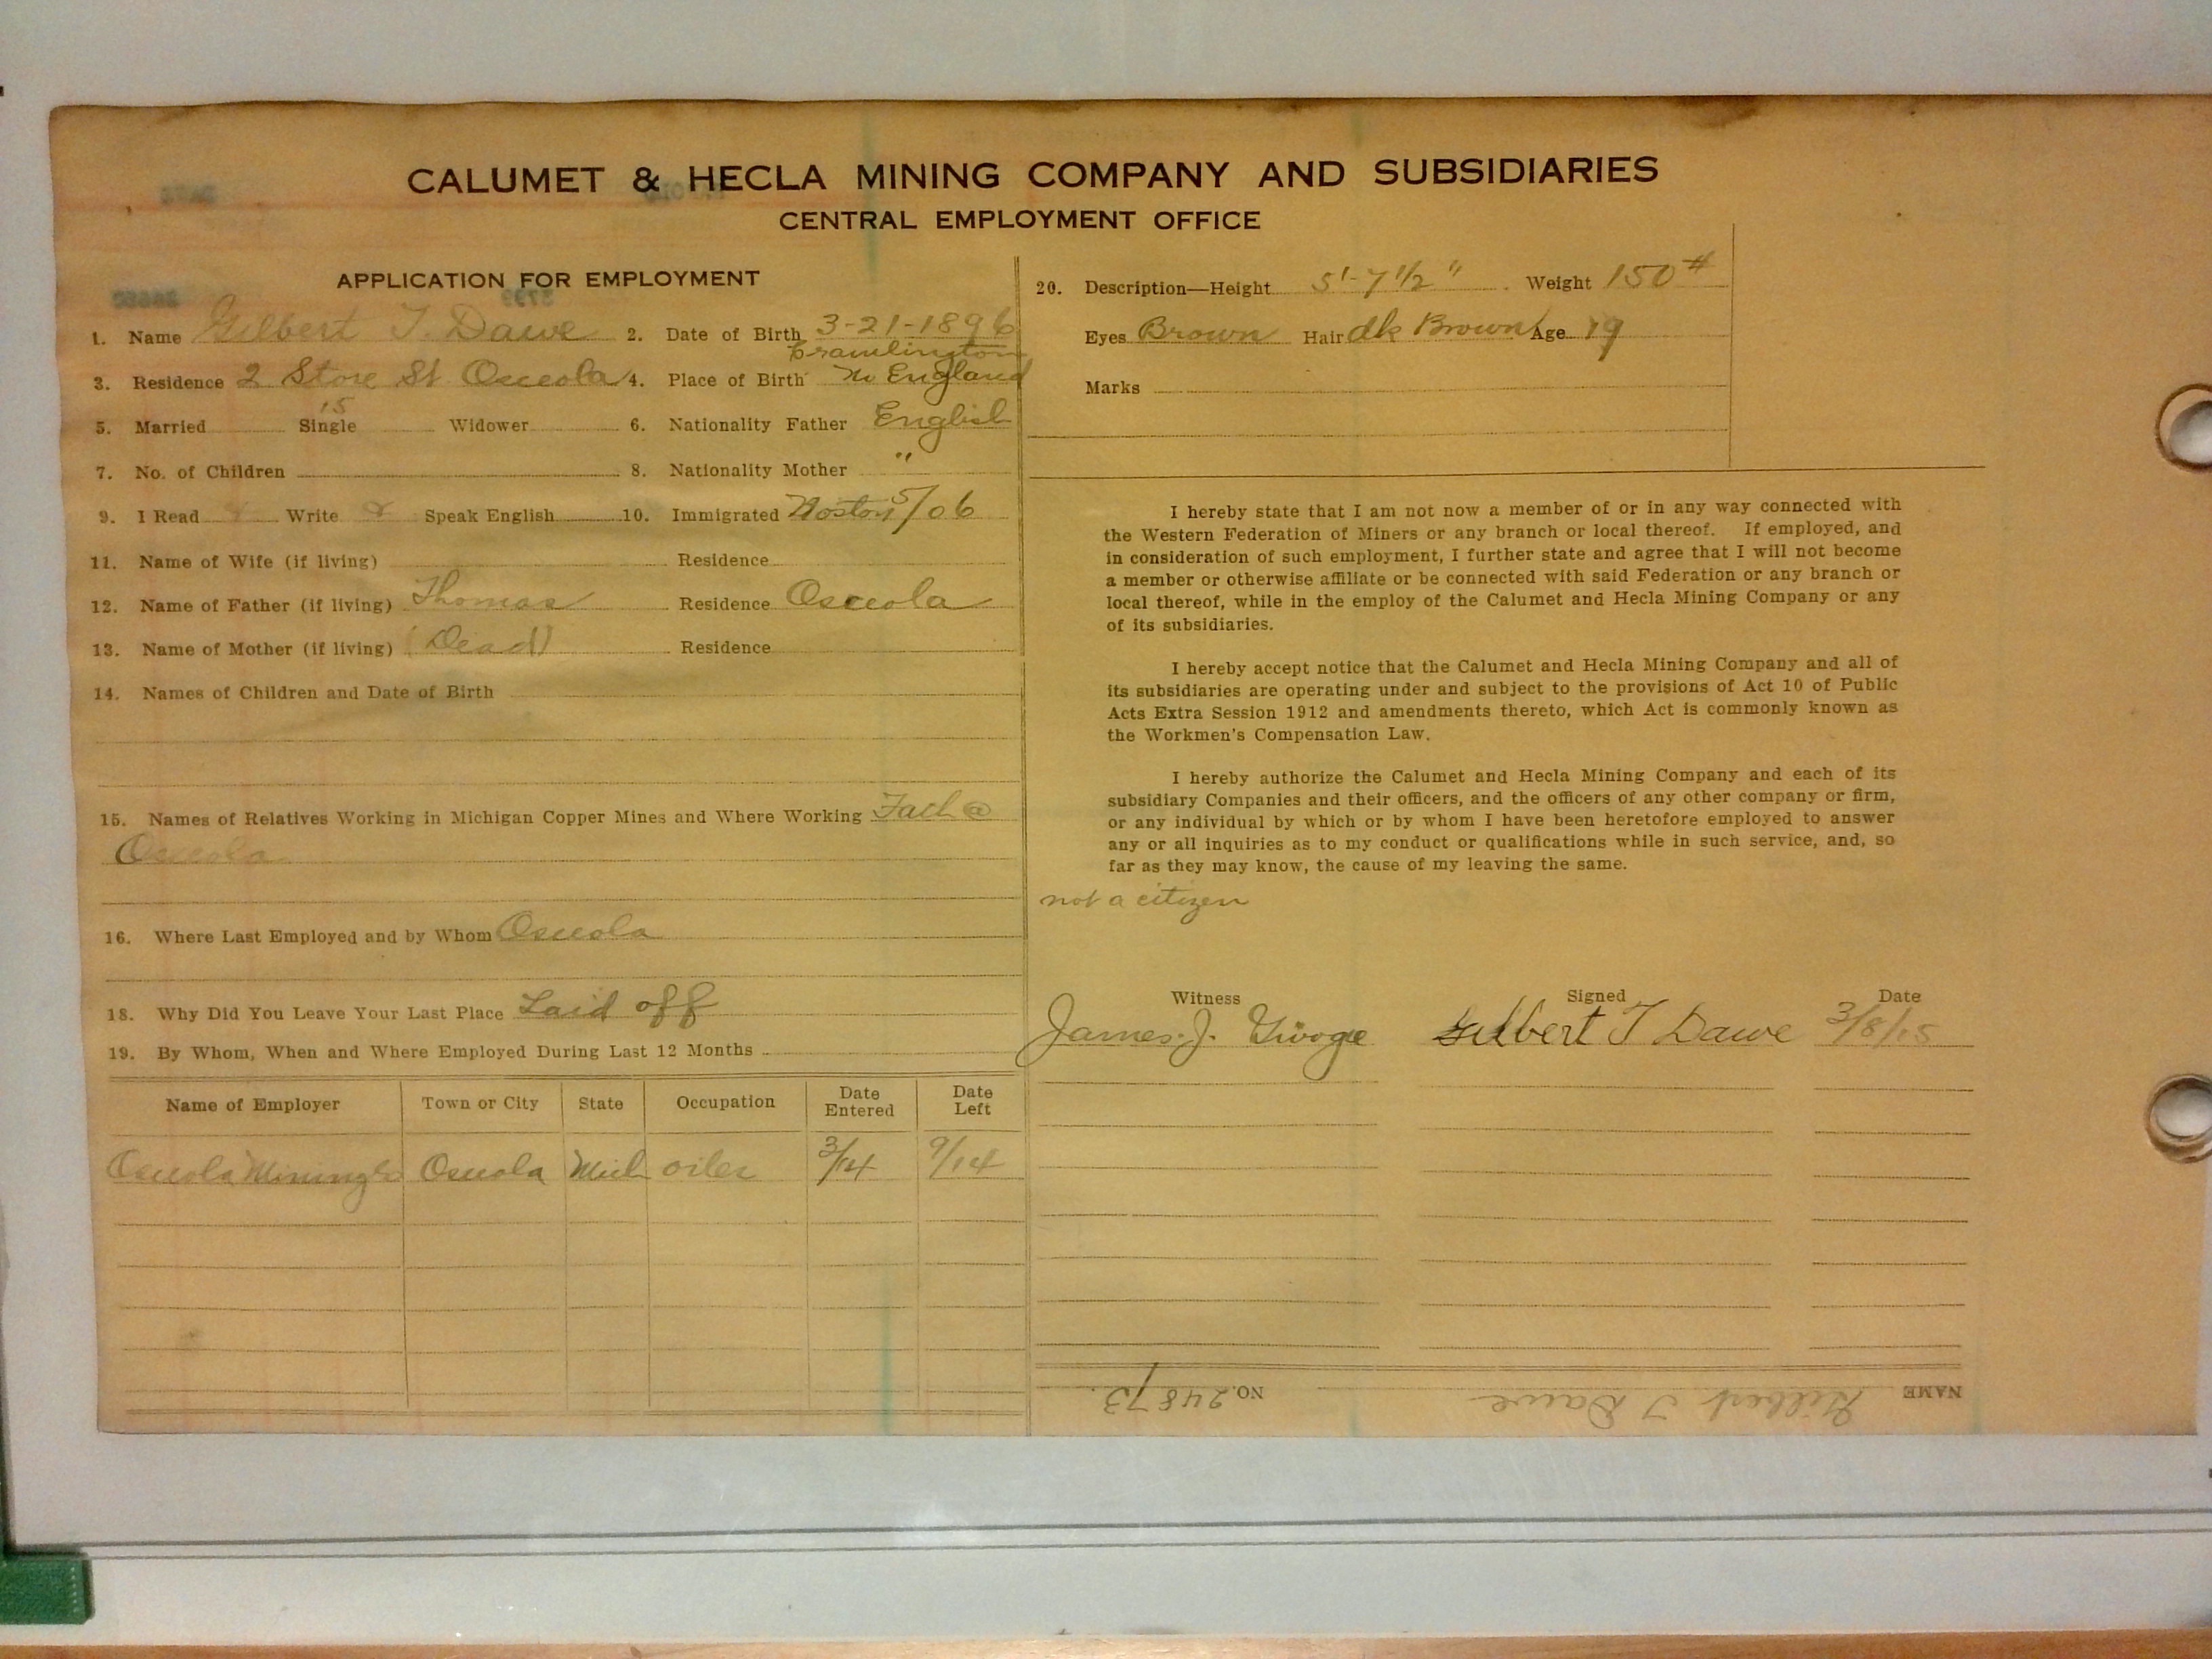 CALUMET & HECLA MINING COMPANY AND SUBSIDIARIES
CENTRAL EMPLOYMENT OFFICE
APPLICATION FOR EMPLOYMENT
1. Name Gilbert T. Dawe 2. Date of Birth 3-21-1896
Cramlington
3. Residence 2 Store St Osceola 4. Place of Birth No England
5. Married Single Widower 6. Nationality Father English
7. No. of Children 8. Nationality Mother "
9. I Read Write Speak English 10. Immigrated Boston 5/06
11. Name of Wife (if living) Residence
12. Name of Father (if living) Thomas Residence Osceola
13. Name of Mother (if living) (Dead) Residence
14. Names of Children and Date of Birth
15. Names of Relatives Working in Michigan Copper Mines and Where Working Fath @
Osceola
16. Where Last Employed and by Whom Osceola
18. Why Did You Leave Your Last Place Laid off
19. By Whom, When and Where Employed During Last 12 Months
Name of Employer Town or City State Occupation Date Entered Date Left
Osceola Mining Co Osceola Mich oiler 3/14 9/14
20. Description—Height 5'-7 1/2" Weight 150#
Eyes Brown Hair dk Brown Age 19
Marks
I hereby state that I am not now a member of or in any way connected with
the Western Federation of Miners or any branch or local thereof. If employed, and
in consideration of such employment, I further state and agree that I will not become
a member or otherwise affiliate or be connected with said Federation or any branch or
local thereof, while in the employ of the Calumet and Hecla Mining Company or any
of its subsidiaries.
I hereby accept notice that the Calumet and Hecla Mining Company and all of
its subsidiaries are operating under and subject to the provisions of Act 10 of Public
Acts Extra Session 1912 and amendments thereto, which Act is commonly known as
the Workmen's Compensation Law.
I hereby authorize the Calumet and Hecla Mining Company and each of its
subsidiary Companies and their officers, and the officers of any other company or firm,
or any individual by which or by whom I have been heretofore employed to answer
any or all inquiries as to my conduct or qualifications while in such service, and, so
far as they may know, the cause of my leaving the same.
not a citizen
Witness Signed Date
James J. Gilbert T Dawe 3/8/15
NAME Gilbert T Dawe NO. 24873